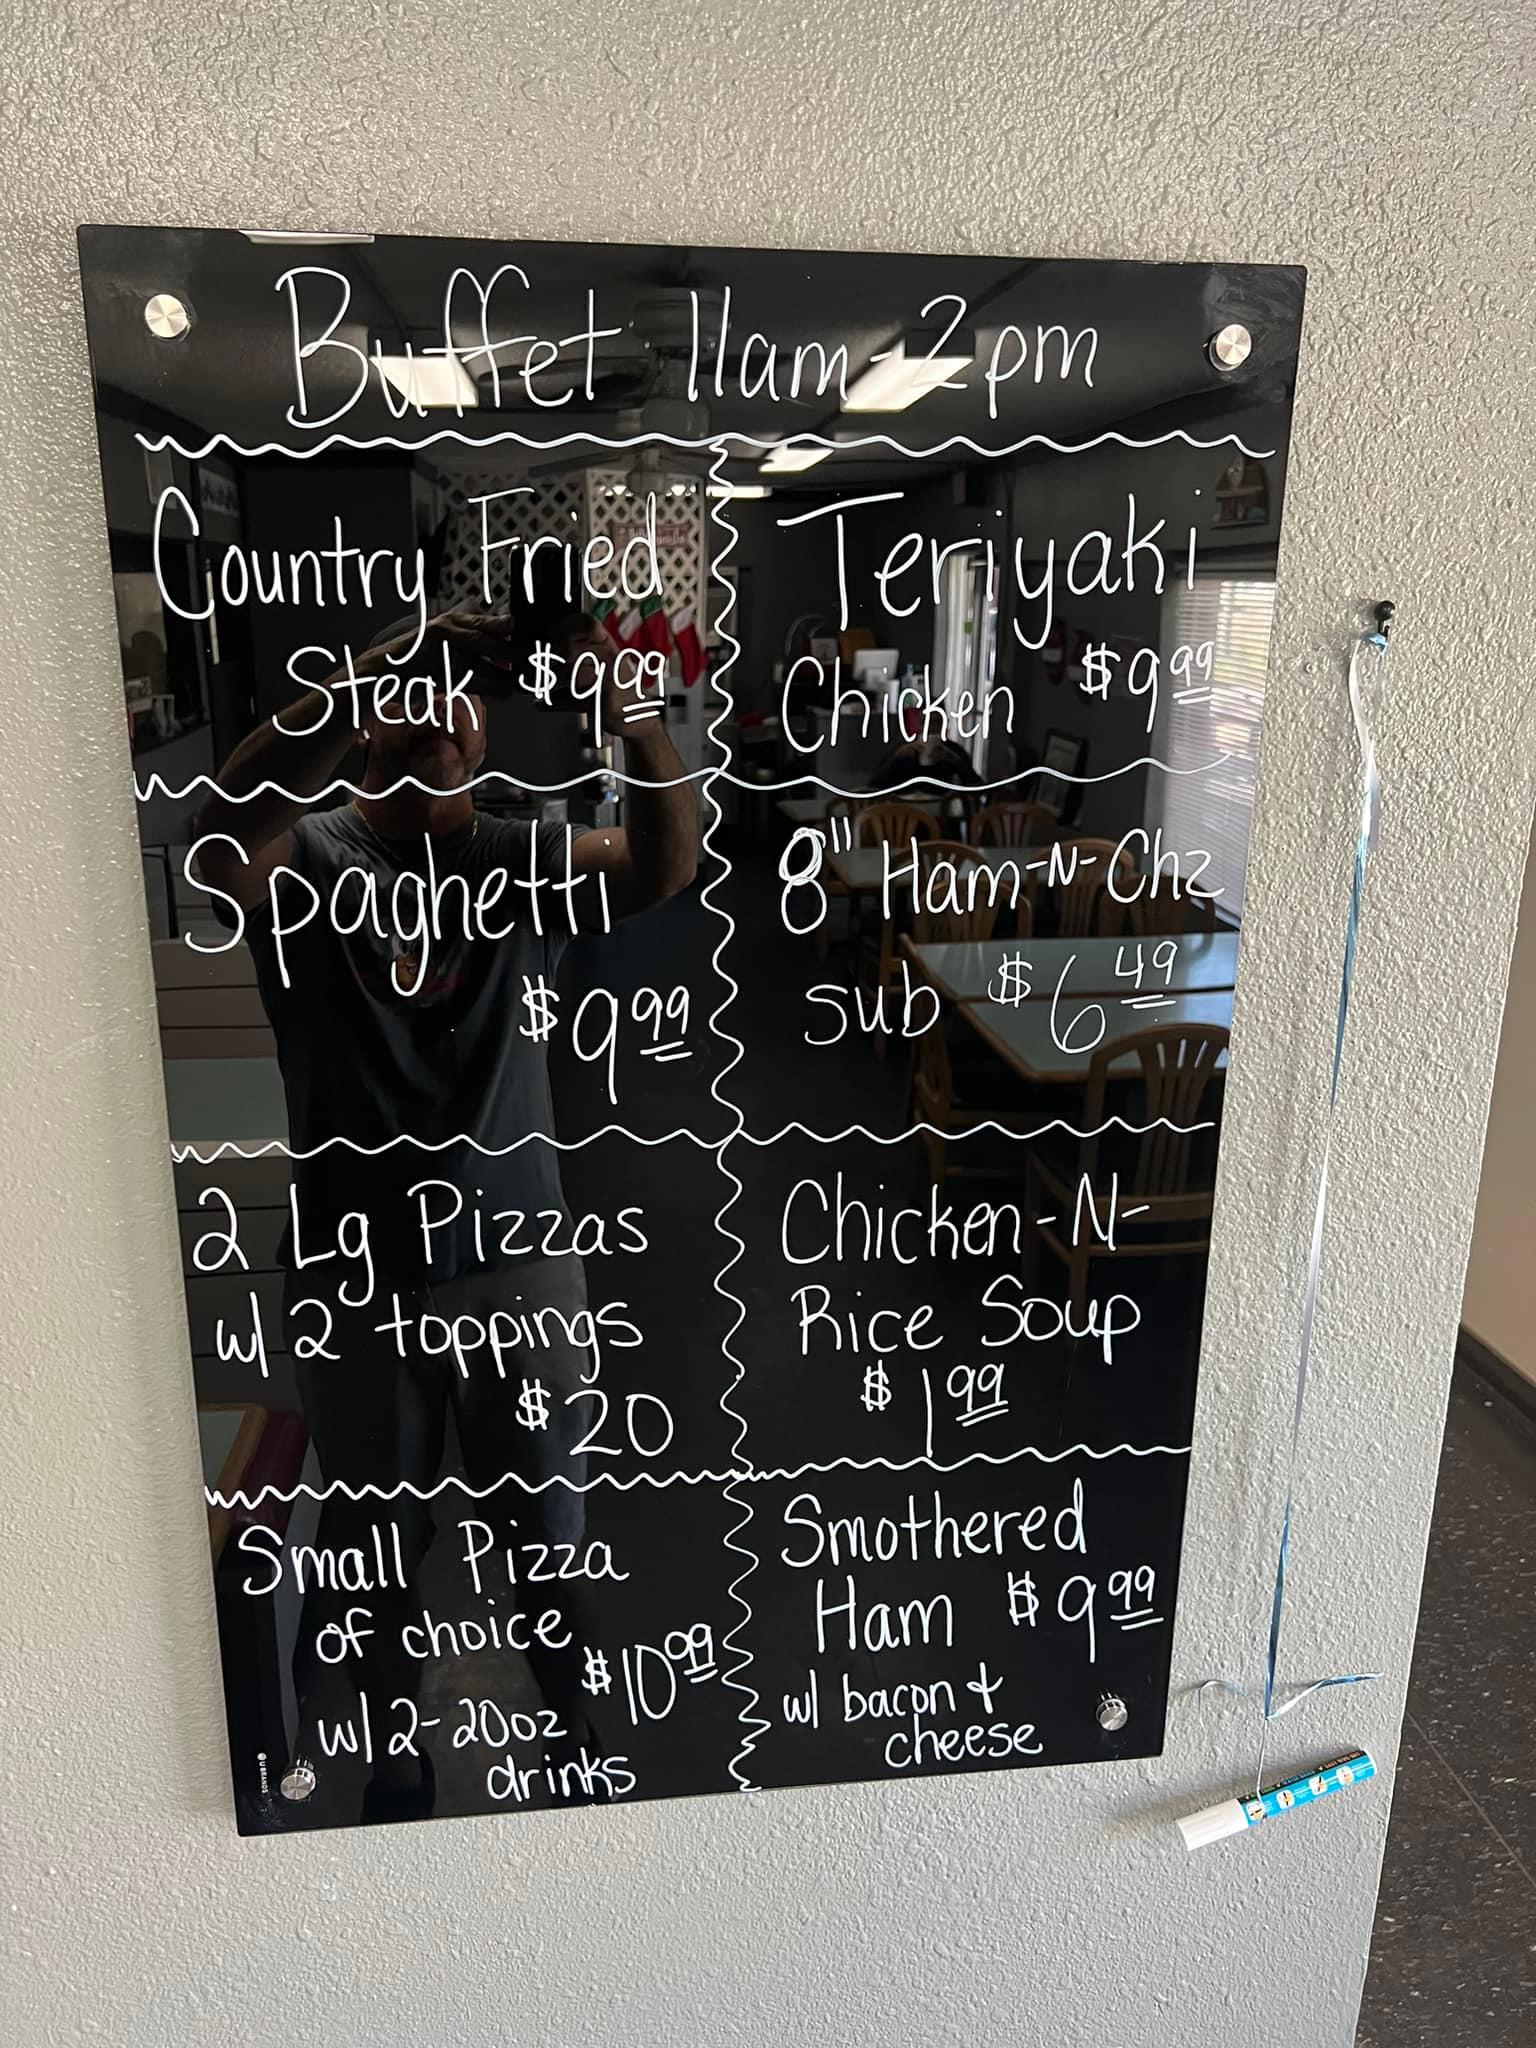 Buffet 11am-2pm
Country Fried
Steak $9.99
Teriyaki
Chicken $9.99
Spaghetti
$9.99
8" Ham-N-Chz
sub $6.49
2 Lg Pizzas
w/ 2 toppings
$20
Chicken-N-
Rice Soup
$1.99
Small Pizza
of choice
$10.99
w/ 2-20oz
drinks
Smothered
Ham $9.99
w/ bacon +
cheese
U BRANDS